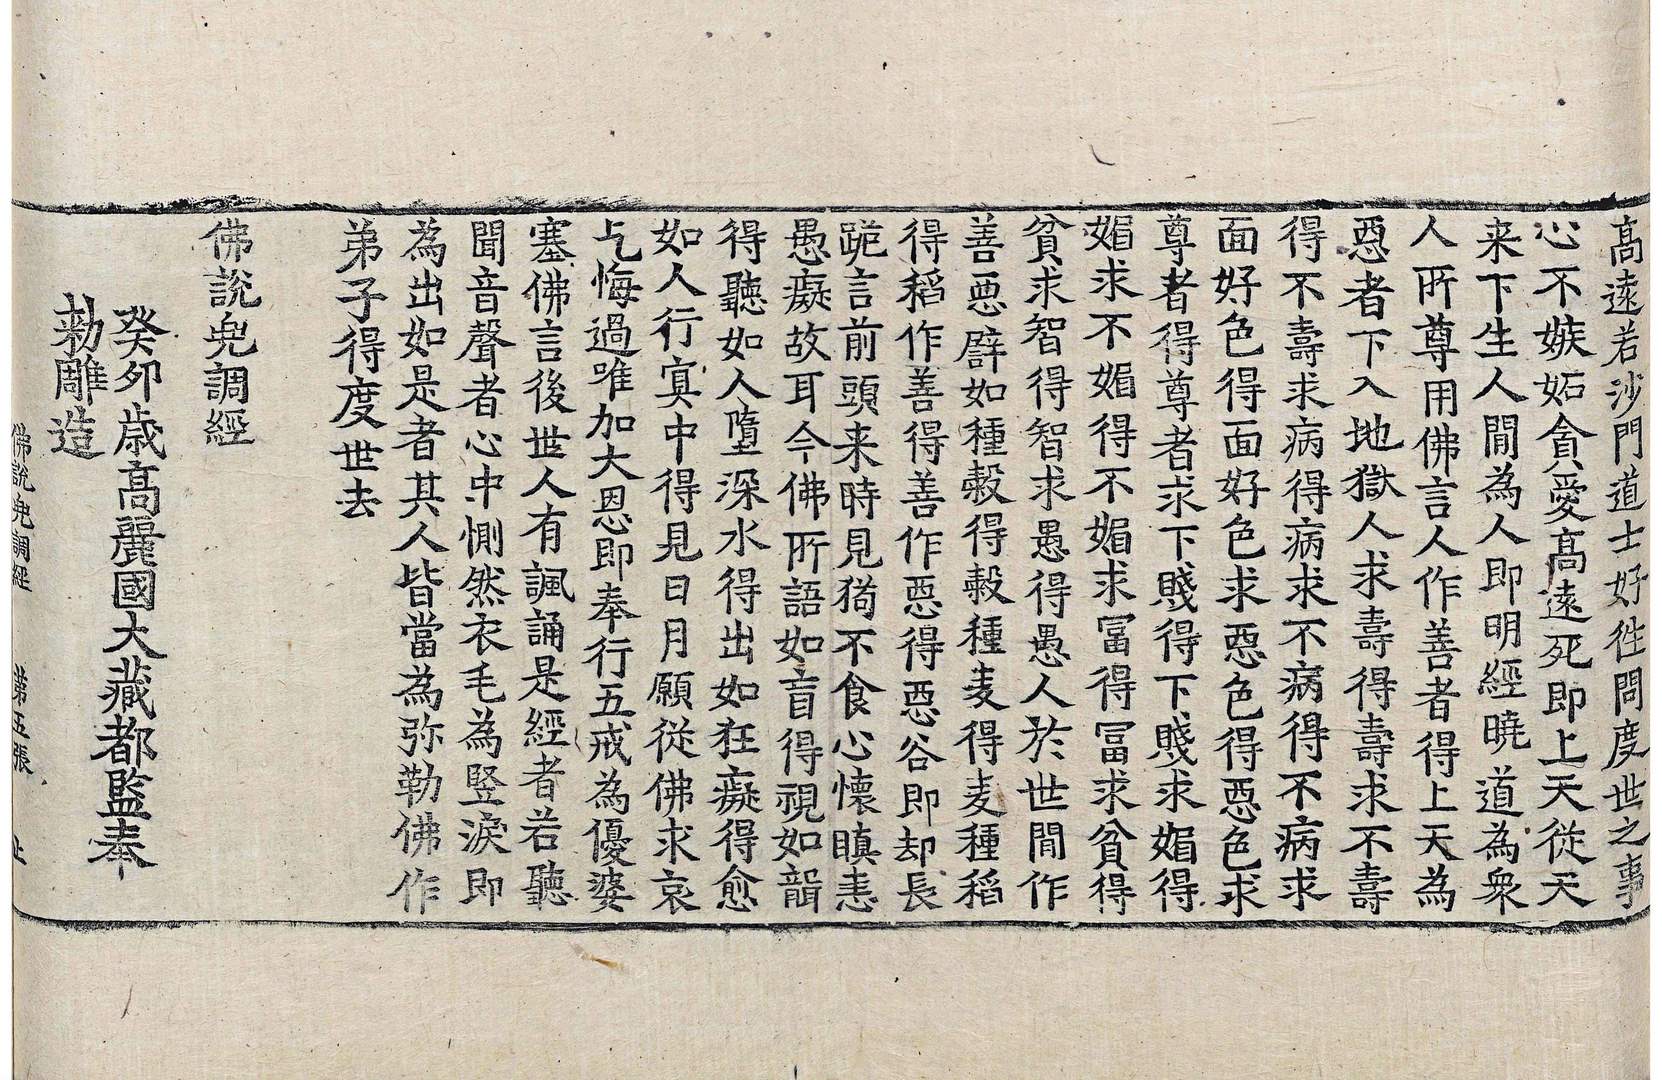 髙遠若沙門道士好徃問度世之事
心不嫉妬貪愛髙遠死即上天從天
来下生人間為人即明經曉道為衆
人所尊用佛言人作善者得上天為
惡者下入地獄人求壽得壽求不壽
得不壽求病得病求不病得不病求
面好色得面好色求惡色得惡色求
尊者得尊者求下賤得下賤求媚得
媚求不媚得不媚求冨得冨求貧得
貧求智得智求愚得愚人於世間作
善惡辟如種穀得穀種麦得麦種稻
得稻作善得善作惡得惡谷即却長
跪言前頭来時見猗不食心懷瞋恚
愚癡故耳今佛所語如盲得視如聾
得聽如人墮深水得出如狂癡得愈
如人行冥中得見日月願從佛求哀
乞悔過唯加大恩即奉行五戒為優婆
塞佛言後世人有諷誦是經者若聽
聞音聲者心中惻然衣毛為竪淚即
為出如是者其人皆當為弥勒佛作
弟子得度世去
佛說兜調經
癸卯歳高麗國大藏都監奉
勅雕造
佛說兜調經 第五張 止